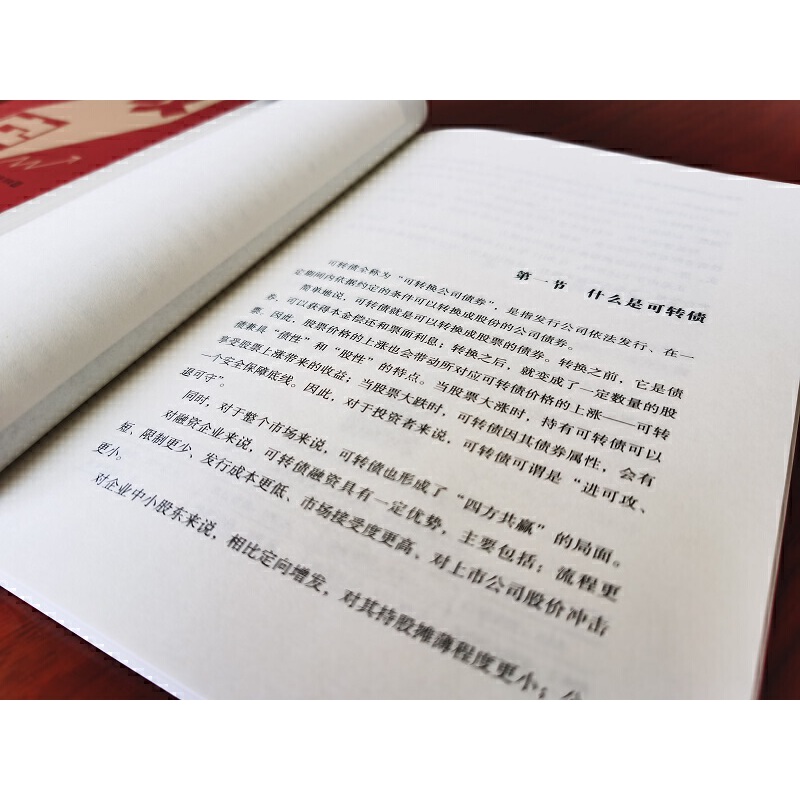 第一节 什么是可转债
可转债全称为“可转换公司债券”，是指发行公司依法发行、在一
定期间内依据约定的条件可以转换成股份的公司债券。
简单地说，可转债就是可以转换成股票的债券。转换之前，它是债
券，可以获得本金偿还和票面利息；转换之后，就变成了一定数量的股
票。因此，股票价格的上涨也会带动所对应可转债价格的上涨——可转
债兼具“债性”和“股性”的特点。当股票大涨时，持有可转债可以
享受股票上涨带来的收益；当股票大跌时，可转债因其债券属性，会有
一个安全保障底线。因此，对于投资者来说，可转债可谓是“进可攻、
退可守”。
同时，对于整个市场来说，可转债也形成了“四方共赢”的局面。
对融资企业来说，可转债融资具有一定优势，主要包括：流程更
短、限制更少、发行成本更低、市场接受度更高、对上市公司股价冲击
更小。
对企业中小股东来说，相比定向增发，对其持股摊薄程度更小；